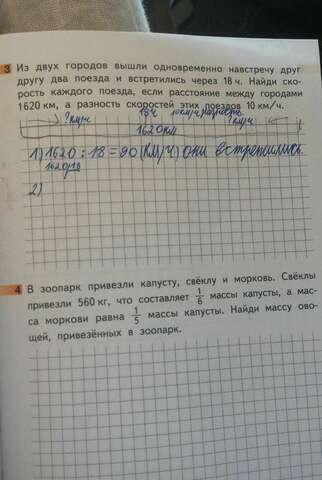 3 Из двух городов вышли одновременно навстречу друг
другу два поезда и встретились через 18 ч. Найди ско-
рость каждого поезда, если расстояние между городами
1620 км, а разность скоростей этих поездов 10 км/ч.
?км/ч 18ч 10км/ч разность ?км/ч
1620км
1) 1620 : 18 = 90 (км/ч) они встретились.
2)
4 В зоопарк привезли капусту, свёклу и морковь. Свёклы
привезли 560 кг, что составляет 1/6 массы капусты, а мас-
са моркови равна 1/5 массы капусты. Найди массу ово-
щей, привезённых в зоопарк.